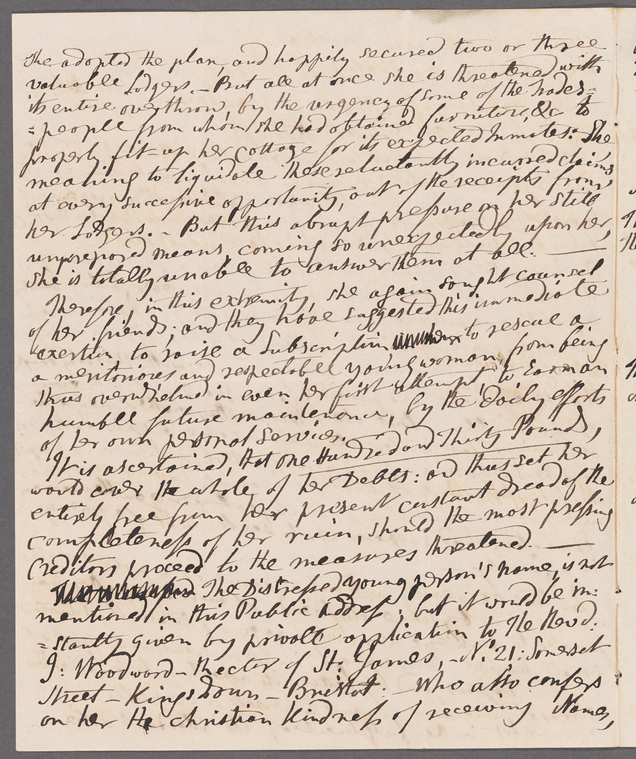 she adopted the plan, and happily secured two or three
valuable Lodgers. - But all at once she is threatened with
its entire overthrow, by the urgency of some of the trades=
=people from whom she had obtained furniture, &c to
properly fit-up her cottage for its expected Inmates: She
meaning to liquidate these reluctantly incurred claims
at every successive opportunity, out of the receipts from
her Lodgers. - But this abrupt pressure on her still
unprepared means, coming so unexpectedly upon her,
she is totally unable to answer them at all. —
Therefore, in this extremity, she again sought counsel
of her friends; and they have suggested this immediate
exertion to raise a Subscription to rescue a
a meritorious and respectable young woman from being
thus overwhelmed in even her first attempt, to Earn an
humble future maintenance, by the daily efforts
of her own personal Services.
It is ascertained, that one Hundred and Thirty Pounds,
would cover the whole of her Debts: and thus set her
entirely free from her present constant dread of the
completeness of her ruin, should the most pressing
Creditors proceed to the measures threatened. —
The Distressed young person's name, is not
mentioned in this Public Address; but it would be in:
=stantly given by private application to The Revd.
J: Woodward - Rector of St. James, - No. 21: Somerset
Street - Kingsdown - Bristol. Who also confers
on her the christian Kindness of receiving Names,